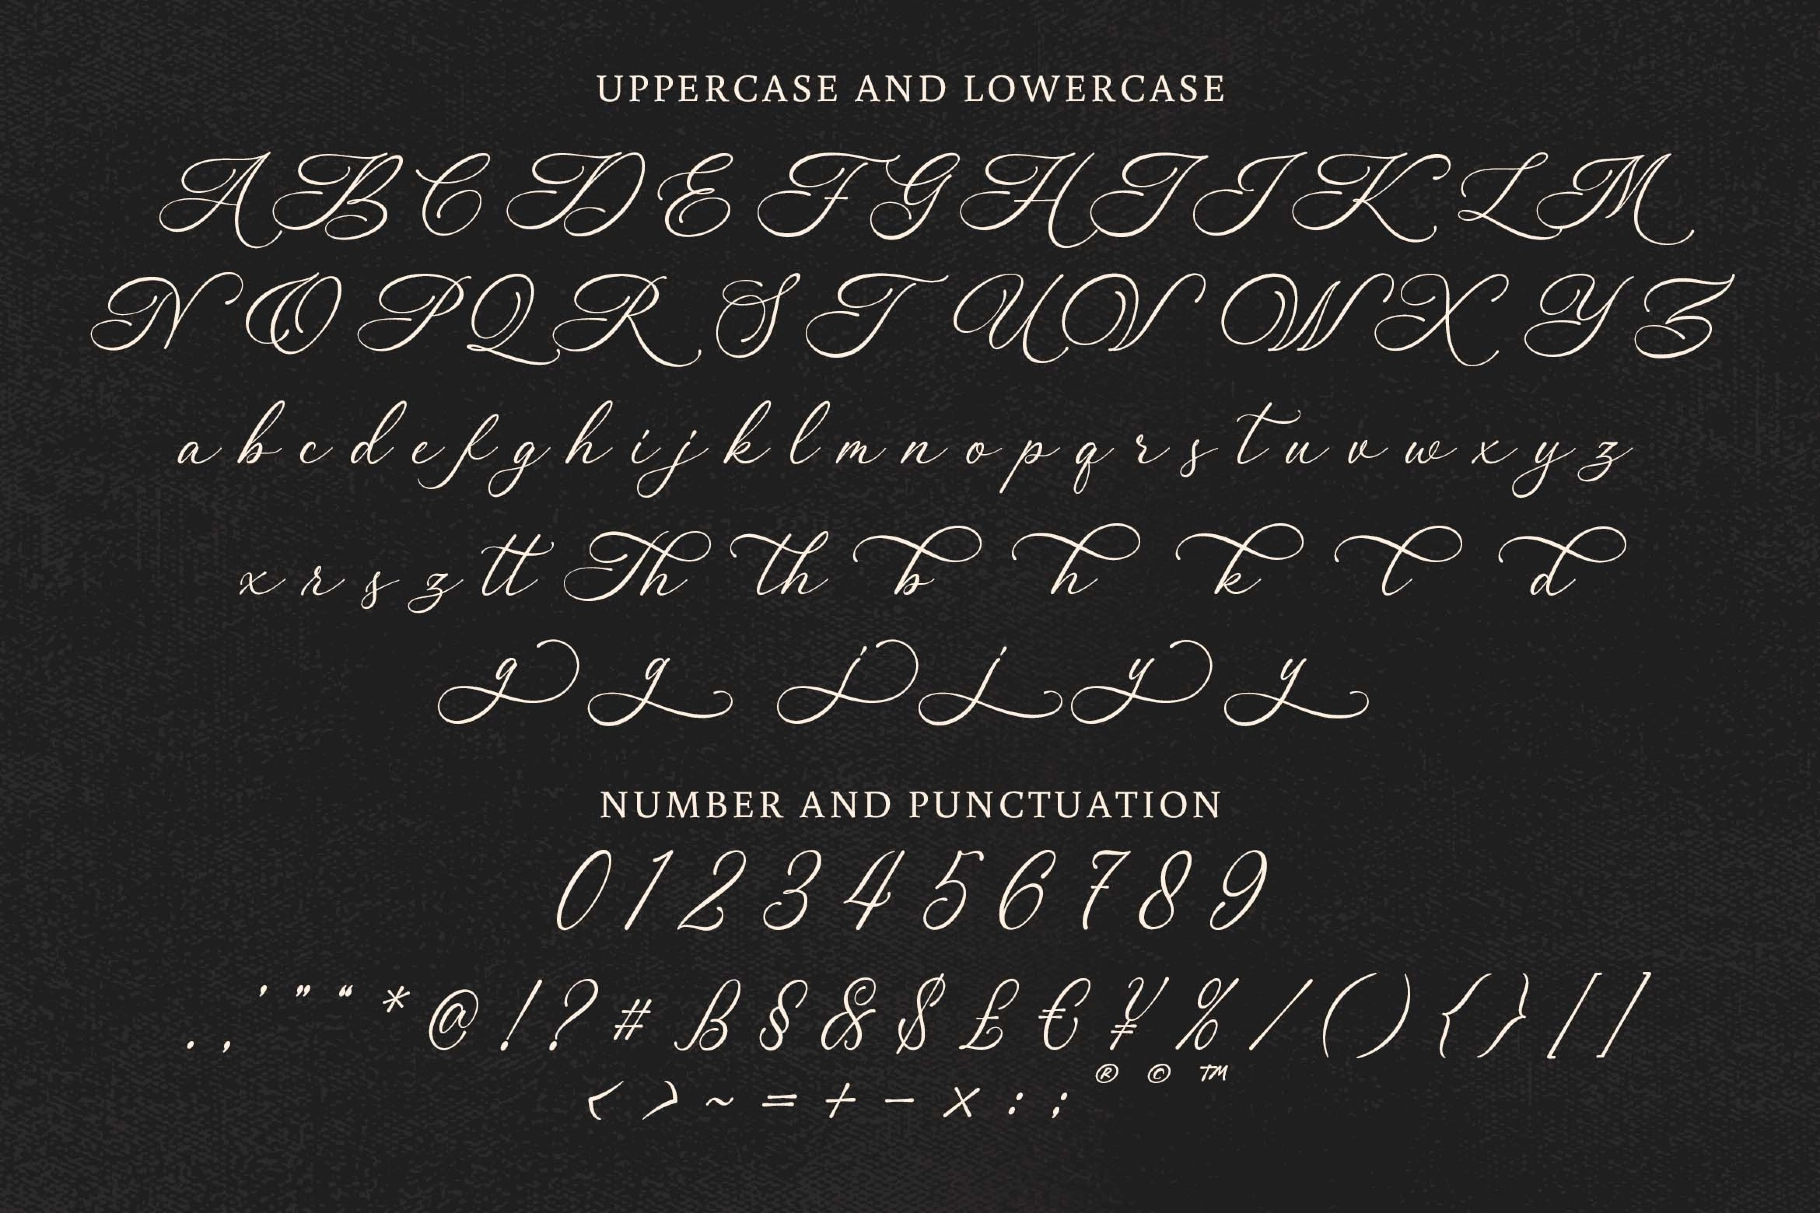 UPPERCASE AND LOWERCASE
A B C D E F G H I J K L M
N O P Q R S T U V W X Y Z
a b c d e f g h i j k l m n o p q r s t u v w x y z
x r s z tt Th th b h k t d
g g j j y y
NUMBER AND PUNCTUATION
0 1 2 3 4 5 6 7 8 9
. , ' ” “ * @ ! ? # ß § & $ £ € ¥ % / ( ) { } [ ]
< > ~ = + − × : ; ® © ™